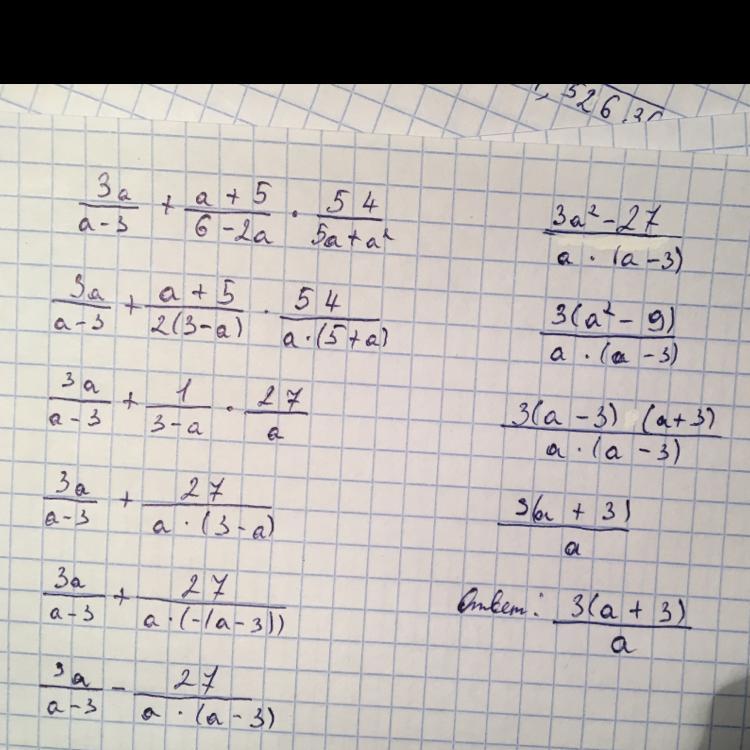 526.30
3a/(a-3) + (a+5)/(6-2a) · 54/(5a+a²)
3a/(a-3) + (a+5)/(2(3-a)) · 54/(a·(5+a))
3a/(a-3) + 1/(3-a) · 27/a
3a/(a-3) + 27/(a·(3-a))
3a/(a-3) + 27/(a·(-(a-3)))
3a/(a-3) - 27/(a·(a-3))
(3a²-27)/(a·(a-3))
3(a²-9)/(a·(a-3))
3(a-3)(a+3)/(a·(a-3))
3(a+3)/a
Ответ: 3(a+3)/a